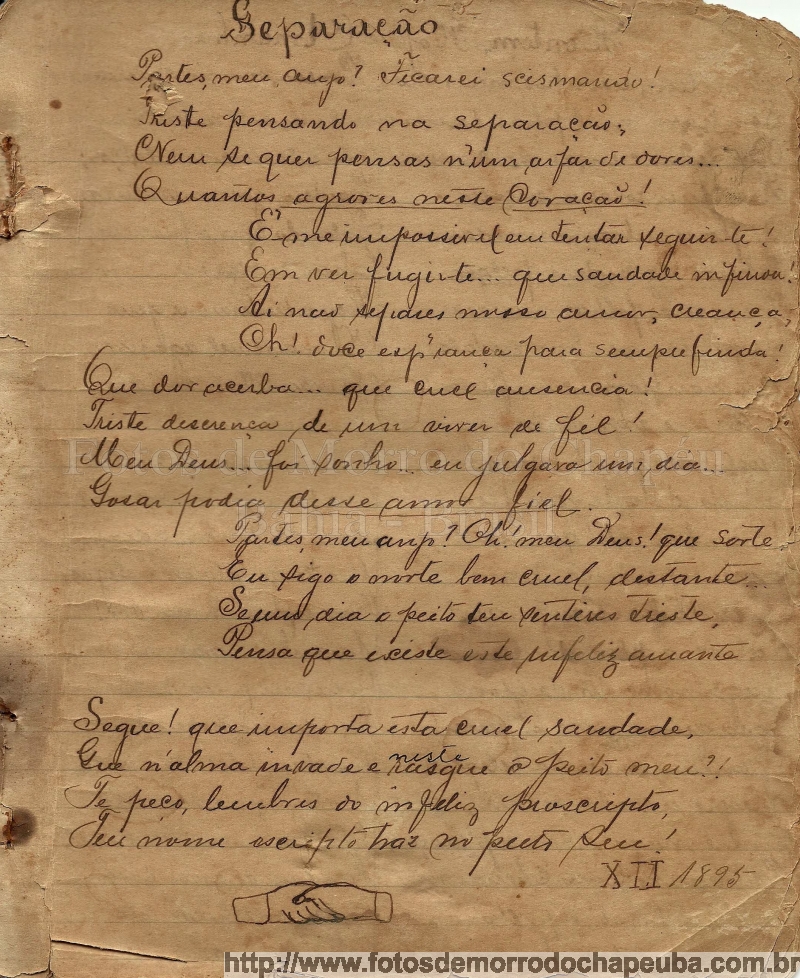 Separação
Partes, meu anjo? Ficarei scismando!
Triste pensando na separação;
Nem se quer pensas n'um arfar de dores...
Quantos agrores neste Coração!
E' me impossivel em tentar seguir-te!
Em ver fugir-te... que saudade infinda!
Ai não separes nosso amor, creança,
Oh! doce esp'rança para sempre finda!
Que dor acerba... que cruel ausencia!
Triste descrença de um viver de fél!
Meu Deus... foi sonho... eu julgava um dia...
Gosar podia desse amor fiel.
Partes, meu anjo? Oh! meu Deus! que sorte!
Eu sigo o norte bem cruel, destante...
Se um dia o peito teu sentires triste,
Pensa que existe este infeliz amante
Segue! que importa esta cruel saudade,
Que n'alma invade e neste rasgue o peito meu?!
Te peço, lembres do infeliz proscripto,
Teu nome escripto traz no peito seu!
XII 1895
Fotos de Morro do Chapéu
Bahia - Brasil
http://www.fotosdemorrodochapeuba.com.br